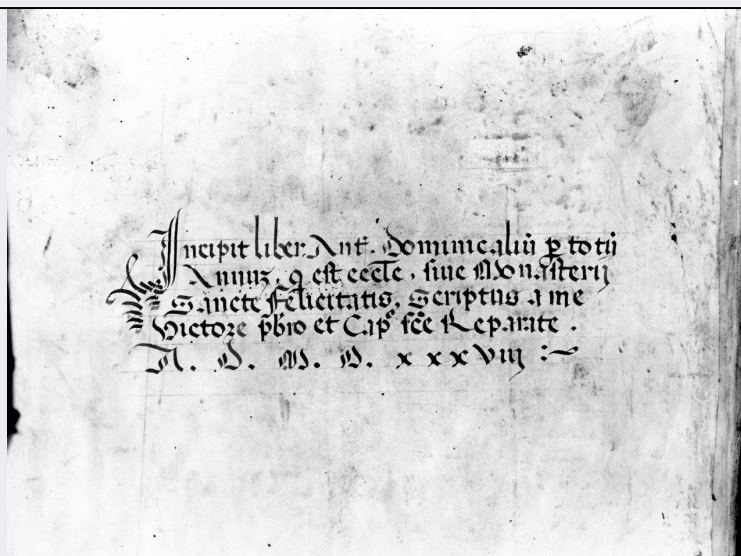 Incipit liber Ant. Dominicaliũ ꝑ totũ
Annuȝ. q est eccl̃e, siue Monasterij
Sancte Felicitatis, Scriptus a me
Victore p̃bro et Capo sc̃e Reparate .
A. D. M. D. xxxviij :~